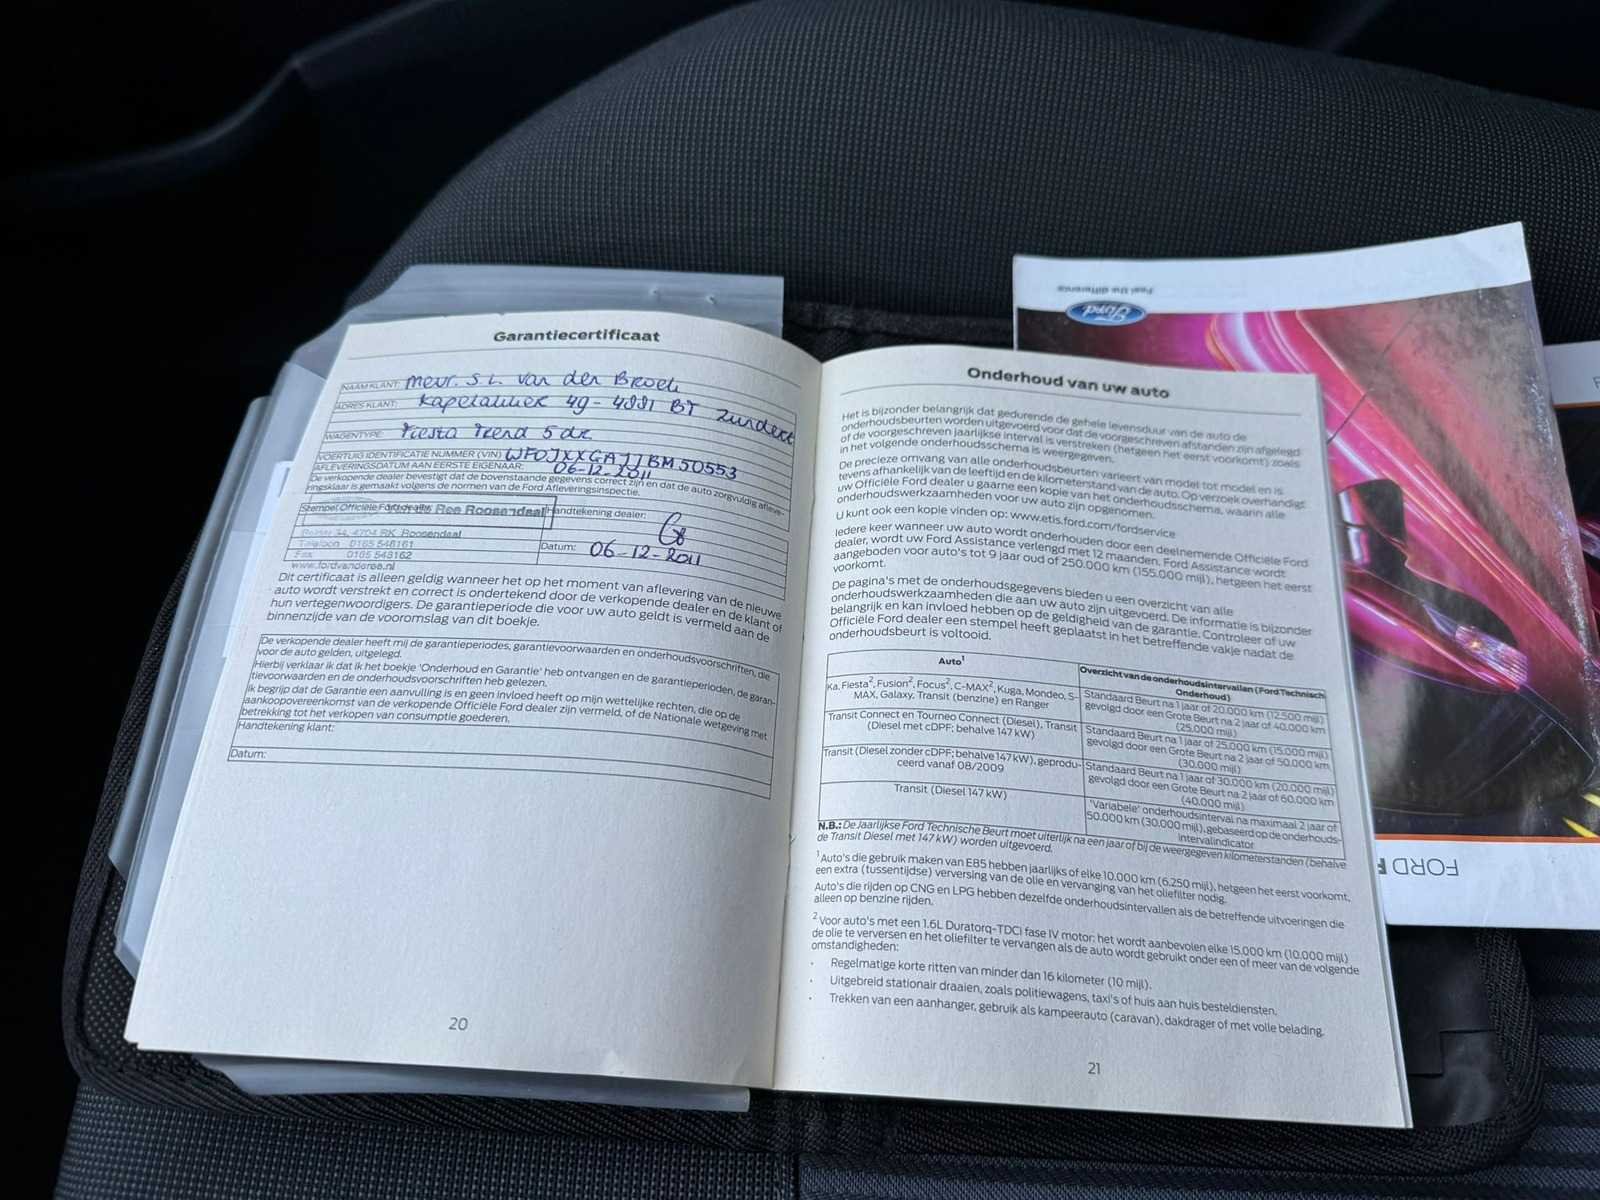 Garantiecertificaat
NAAM KLANT: Mevr. S.L. van den Broek
ADRES KLANT: Kapelakker 49 - 4881 BT Zundert
WAGENTYPE: Fiesta Trend 5 dr
VOERTUIG IDENTIFICATIE NUMMER (VIN) WF0JXXGAJJBM50553
AFLEVERINGSDATUM AAN EERSTE EIGENAAR: 06-12-2011
De verkopende dealer bevestigt dat de bovenstaande gegevens correct zijn en dat de auto zorgvuldig afleve-
ringsklaar is gemaakt volgens de normen van de Ford Afleveringsinspectie.
Stempel Officiële Ford dealer: Ree Roosendaal
Handtekening dealer:
34, 4704 RK Roosendaal
Telefoon 0165 548161
Fax 0165 548162
www.fordvanderee.nl
Datum: 06-12-2011
Dit certificaat is alleen geldig wanneer het op het moment van aflevering van de nieuwe
auto wordt verstrekt en correct is ondertekend door de verkopende dealer en de klant of
hun vertegenwoordigers. De garantieperiode die voor uw auto geldt is vermeld aan de
binnenzijde van de vooromslag van dit boekje.
De verkopende dealer heeft mij de garantieperiodes, garantievoorwaarden en onderhoudsvoorschriften, die
voor de auto gelden, uitgelegd.
Hierbij verklaar ik dat ik het boekje 'Onderhoud en Garantie' heb ontvangen en de garantieperioden, de garan-
tievoorwaarden en de onderhoudsvoorschriften heb gelezen.
Ik begrijp dat de Garantie een aanvulling is en geen invloed heeft op mijn wettelijke rechten, die op de
aankoopovereenkomst van de verkopende Officiële Ford dealer zijn vermeld, of de Nationale wetgeving met
betrekking tot het verkopen van consumptie goederen.
Handtekening klant:
Datum:
20
Onderhoud van uw auto
Het is bijzonder belangrijk dat gedurende de gehele levensduur van de auto de
onderhoudsbeurten worden uitgevoerd voor dat de voorgeschreven afstanden zijn afgelegd
of de voorgeschreven jaarlijkse interval is verstreken (hetgeen het eerst voorkomt) zoals
in het volgende onderhoudsschema is weergegeven.
De precieze omvang van alle onderhoudsbeurten varieert van model tot model en is
tevens afhankelijk van de leeftijd en de kilometerstand van de auto. Op verzoek overhandigt
uw Officiële Ford dealer u gaarne een kopie van het onderhoudsschema, waarin alle
onderhoudswerkzaamheden voor uw auto zijn opgenomen.
U kunt ook een kopie vinden op: www.etis.ford.com/fordservice
Iedere keer wanneer uw auto wordt onderhouden door een deelnemende Officiële Ford
dealer, wordt uw Ford Assistance verlengd met 12 maanden. Ford Assistance wordt
aangeboden voor auto's tot 9 jaar oud of 250.000 km (155.000 mijl), hetgeen het eerst
voorkomt.
De pagina's met de onderhoudsgegevens bieden u een overzicht van alle
onderhoudswerkzaamheden die aan uw auto zijn uitgevoerd. De informatie is bijzonder
belangrijk en kan invloed hebben op de geldigheid van de garantie. Controleer of uw
Officiële Ford dealer een stempel heeft geplaatst in het betreffende vakje nadat de
onderhoudsbeurt is voltooid.
Auto1
Overzicht van de onderhoudsintervallen (Ford Technisch
Onderhoud)
Ka, Fiesta2, Fusion2, Focus2, C-MAX2, Kuga, Mondeo, S-
MAX, Galaxy, Transit (benzine) en Ranger
Standaard Beurt na 1 jaar of 20.000 km (12.500 mijl)
gevolgd door een Grote Beurt na 2 jaar of 40.000 km
(25.000 mijl)
Transit Connect en Tourneo Connect (Diesel), Transit
(Diesel met cDPF; behalve 147 kW)
Standaard Beurt na 1 jaar of 25.000 km (15.000 mijl)
gevolgd door een Grote Beurt na 2 jaar of 50.000 km
(30.000 mijl)
Transit (Diesel zonder cDPF; behalve 147 kW), geprodu-
ceerd vanaf 08/2009
Standaard Beurt na 1 jaar of 30.000 km (20.000 mijl)
gevolgd door een Grote Beurt na 2 jaar of 60.000 km
(40.000 mijl)
Transit (Diesel 147 kW)
'Variabele' onderhoudsinterval na maximaal 2 jaar of
50.000 km (30.000 mijl), gebaseerd op de onderhouds-
intervalindicator
N.B.: De Jaarlijkse Ford Technische Beurt moet uiterlijk na een jaar of bij de weergegeven kilometerstanden (behalve
de Transit Diesel met 147 kW) worden uitgevoerd.
1 Auto's die gebruik maken van E85 hebben jaarlijks of elke 10.000 km (6.250 mijl), hetgeen het eerst voorkomt,
een extra (tussentijdse) verversing van de olie en vervanging van het oliefilter nodig.
Auto's die rijden op CNG en LPG hebben dezelfde onderhoudsintervallen als de betreffende uitvoeringen die
alleen op benzine rijden.
2 Voor auto's met een 1.6L Duratorq-TDCi fase IV motor: het wordt aanbevolen elke 15.000 km (10.000 mijl)
de olie te verversen en het oliefilter te vervangen als de auto wordt gebruikt onder een of meer van de volgende
omstandigheden:
· Regelmatige korte ritten van minder dan 16 kilometer (10 mijl).
· Uitgebreid stationair draaien, zoals politiewagens, taxi's of huis aan huis besteldiensten.
· Trekken van een aanhanger, gebruik als kampeerauto (caravan), dakdrager of met volle belading.
21
Feel the difference
Ford
FORD